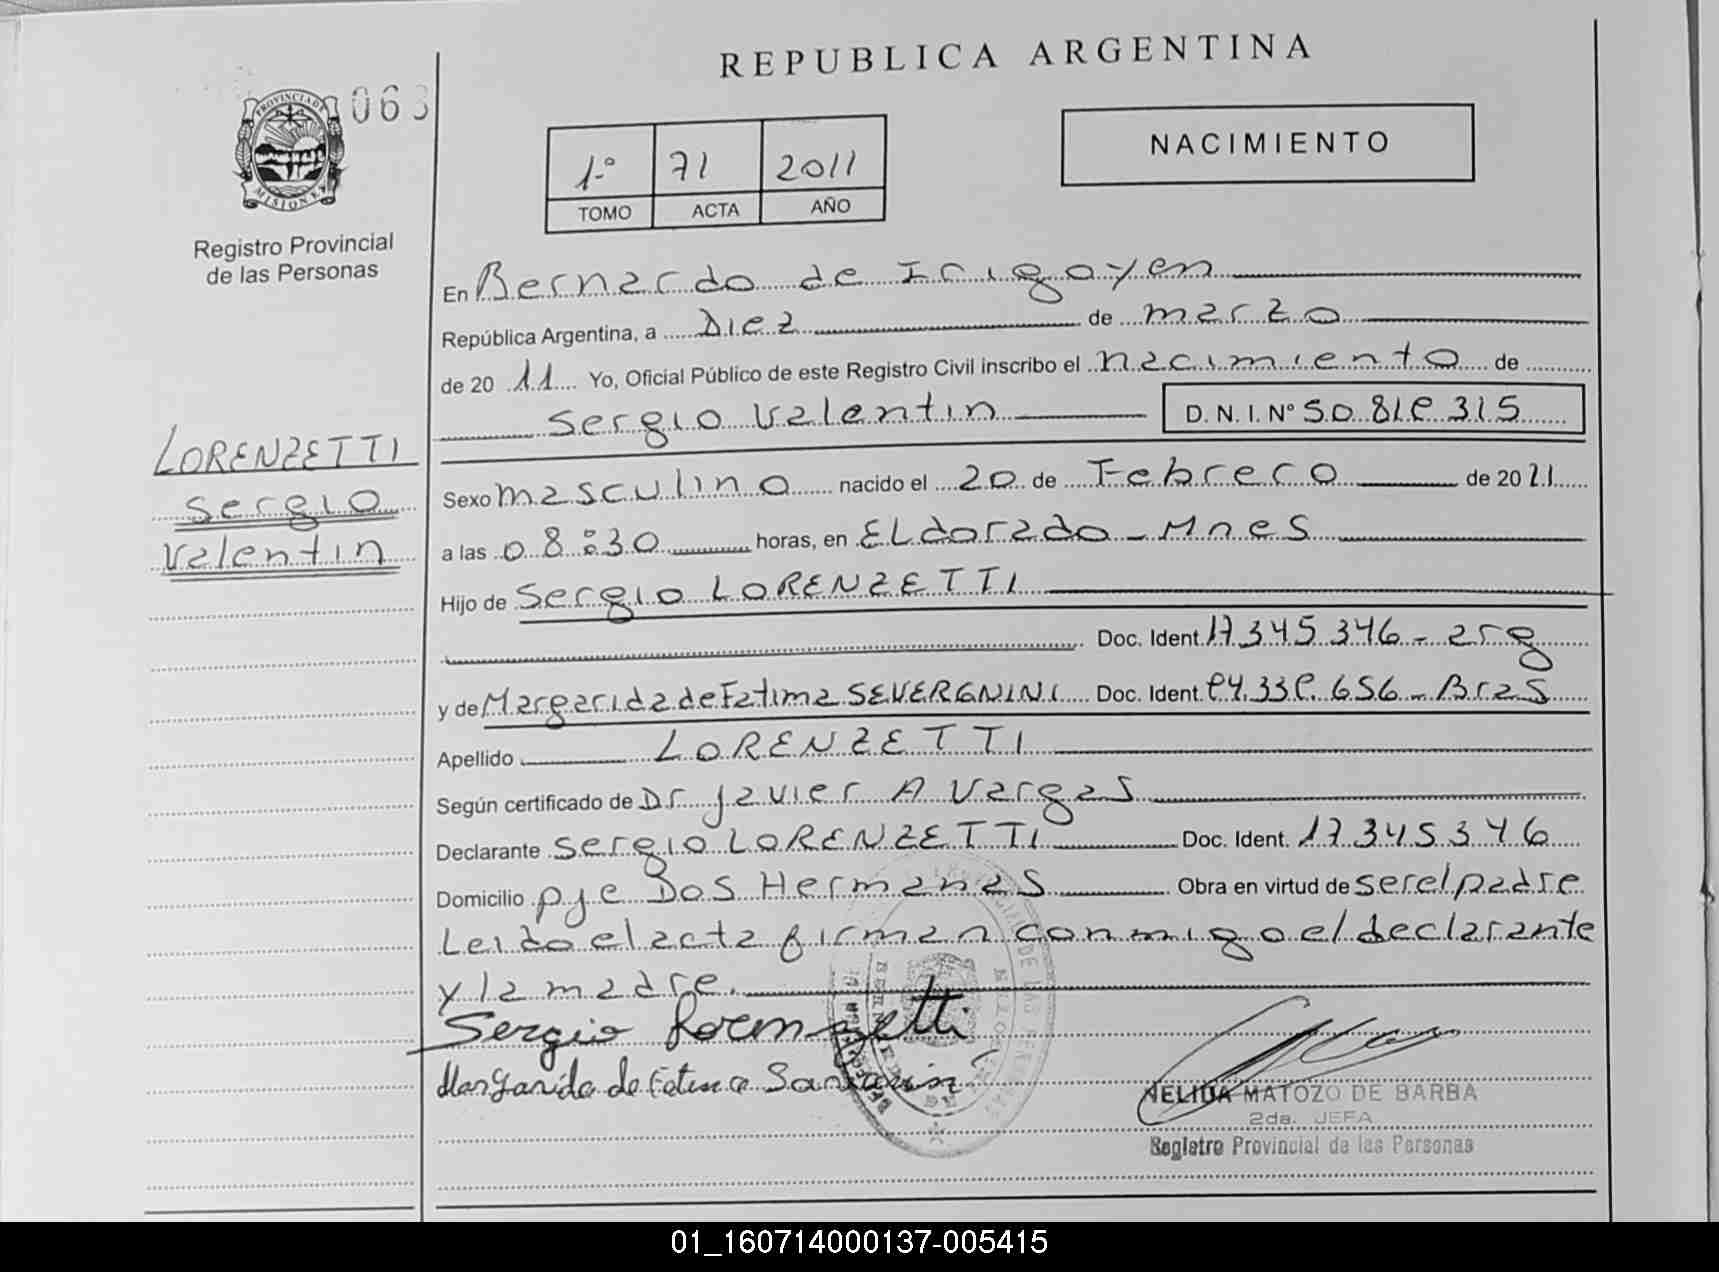 REPUBLICA ARGENTINA
063
PROVINCIA DE
MISIONES
Registro Provincial
de las Personas
NACIMIENTO
1º 71 2011
TOMO ACTA AÑO
En Bernardo de Irigoyen
República Argentina, a Diez de marzo
de 20 11 Yo, Oficial Público de este Registro Civil inscribo el nacimiento de
Sergio Valentin D.N.I. Nº 50.810.315
LORENZETTI
Sergio
Valentin
Sexo masculino nacido el 20 de Febrero de 2011
a las 08:30 horas, en ELdorado - Mnes
Hijo de Sergio LORENZETTI
Doc. Ident. 17.345.346 - arg
y de Margarida de Fatima SEVERGNINI Doc. Ident. - Bras
Apellido LORENZETTI
Según certificado de Dr Javier A Vargas
Declarante Sergio LORENZETTI Doc. Ident. 17.345.346
Domicilio pje Dos Hermanas Obra en virtud de ser el padre
Leido el acta firman conmigo el declarante
y la madre.
Sergio Lorenzetti
Margarida de Fatima
NELIDA MATOZO DE BARBA
2da. JEFA
Registro Provincial de las Personas
01_160714000137-005415